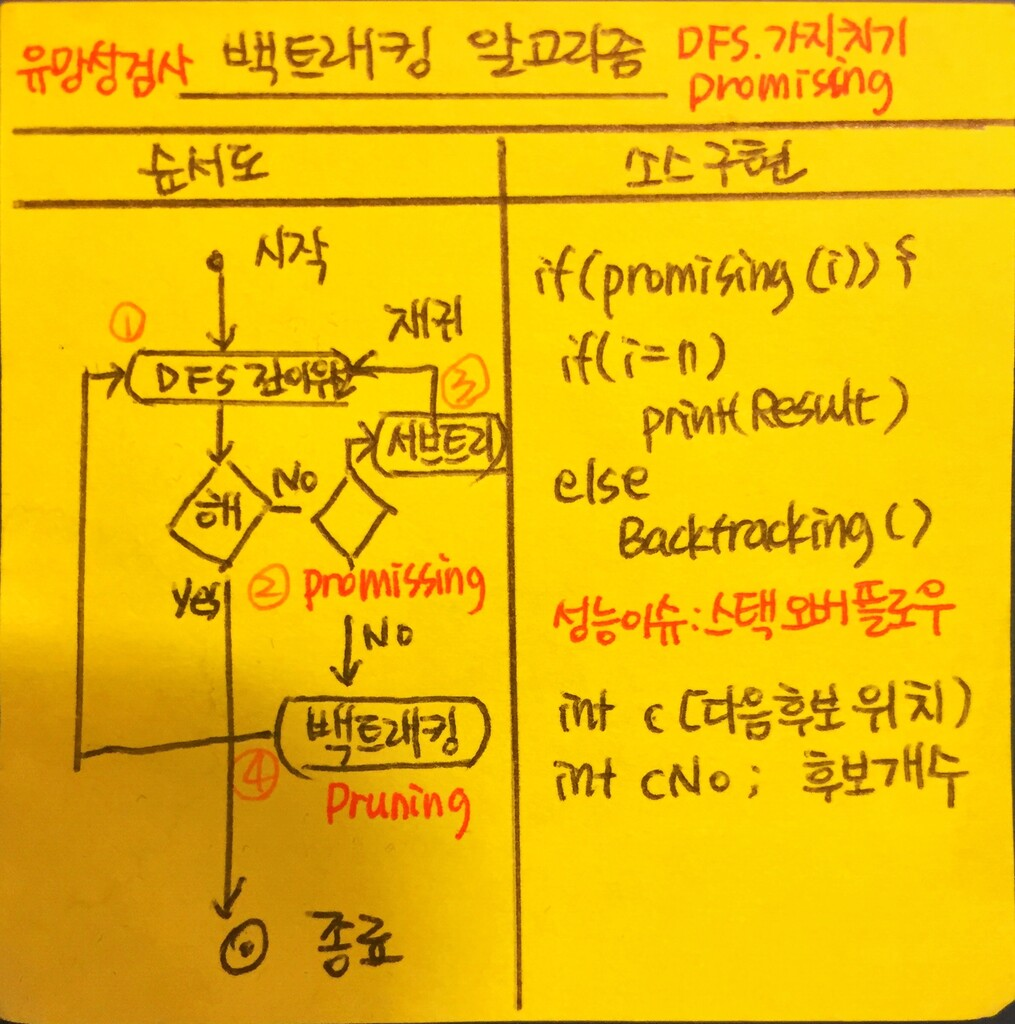 유망성검사 백트래킹 알고리즘 DFS.가지치기
promissing
순서도
소스구현
시작
①
재귀
DFS 깊이우선
③
서브트리
해
No
Yes
② promissing
No
백트래킹
④
Pruning
종료
if(promising (i)) {
if(i=n)
print(Result)
else
Backtracking ()
성능이슈:스택오버플로우
int c (다음후보 위치)
int cNo ; 후보개수